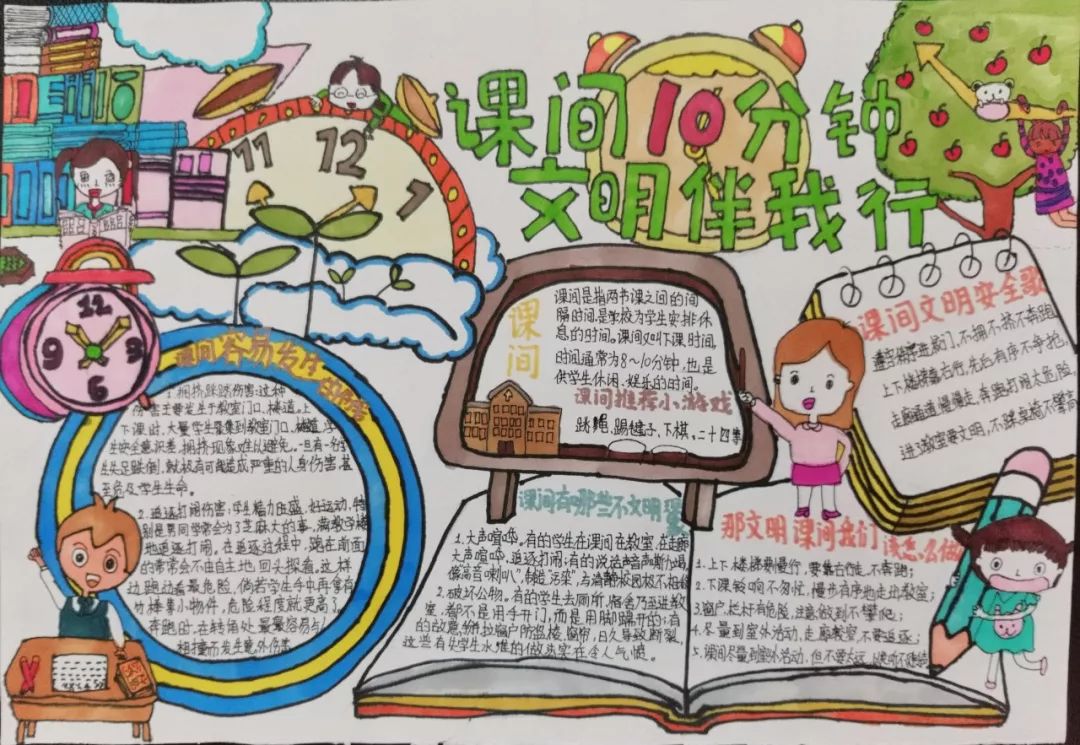 课间10分钟
文明伴我行
11
12
1
12
9
3
6
课间容易发生的伤害
1. 拥挤踩踏伤害:这种
伤害主要发生于教室门口、楼道。上
下课时,大量学生聚集到教室门口、楼道,学
生安全意识差,拥挤现象难以避免。一旦有一名学
生失足跌倒,就极有可能造成严重的人身伤害,甚
至危及学生生命。
2. 追逐打闹伤害:学生精力旺盛、好运动,特
别是男同学常会为了芝麻大的事,满教学楼
地追逐打闹。在追逐过程中,跑在前面
的常常会不由自主地回头探看,这样
边跑边看最危险,倘若学生手中再拿有
竹棒等小物件,危险程度就更高了。
奔跑时,在转角处最最容易与人
相撞而发生意外伤害
课间
课间是指两节课之间的间
隔时间,是学校为学生安排休
息的时间。课间又叫下课时间,
时间通常为8~10分钟,也是
供学生休闲、娱乐的时间。
课间推荐小游戏
跳绳、踢毽子、下棋、二十四点
课间文明安全歌
遵守秩序进校门,不拥不挤不奔跑
上下楼梯靠右行,先后有序不争抢,
走廊通道慢慢走,奔跑打闹太危险。
进了教室要文明,不踩桌椅不攀高
课间有哪些不文明
1. 大声喧哗。有的学生在课间在教室、在走廊
大声喧哗、追逐打闹;有的说话声音声嘶力竭,
像高音喇叭",制造"污染",与清静校园极不相称
2. 破坏公物。有的学生去厕所、宿舍乃至进教
室,都不是用手开门,而是用脚踢开的;有
的故意掰拉窗户防盗楼、窗帘,日久导致断裂,
这些有失学生水准的做法实在令人气愤。
那文明课间我们该怎么做
1. 上下楼梯要慢行,要靠右走,不奔跑;
2. 下课铃响不匆忙,慢步有序地走出教室;
3. 窗户、栏杆有危险,注意做到不攀爬;
4. 尽量到室外活动,走廊教室不要追逐;
5. 课间尽量到室外活动,但不要太远